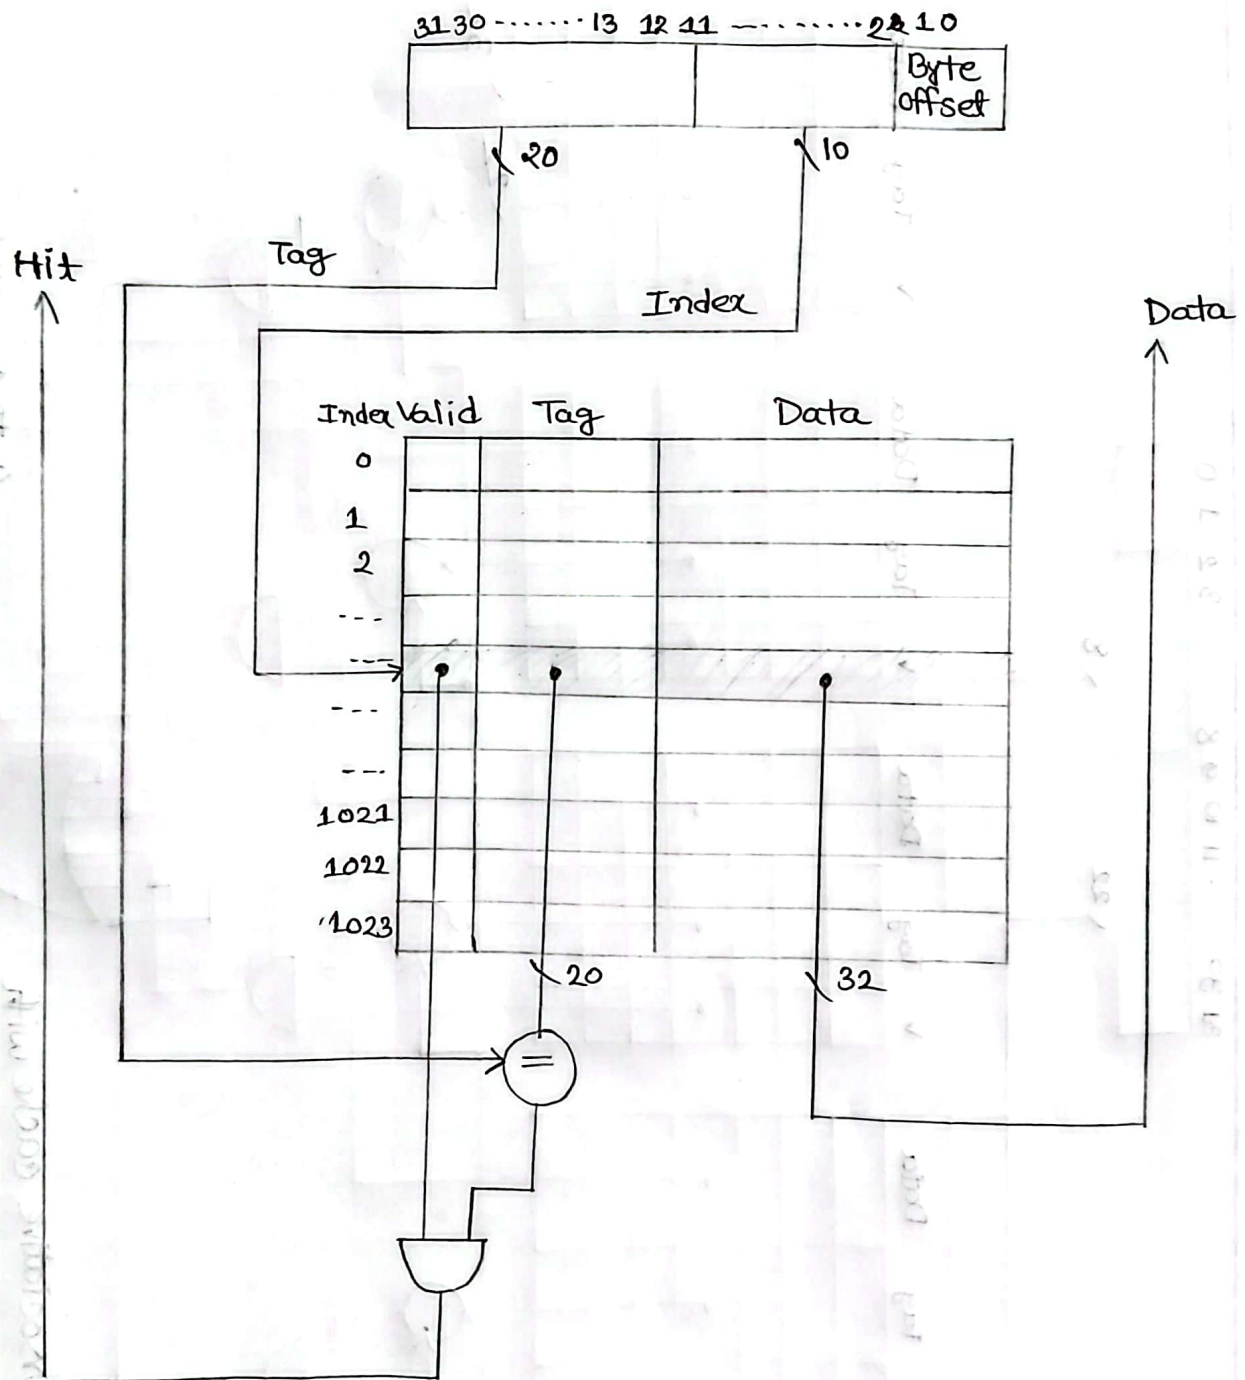 31 30 ------- 13 12 11 --------- 2 1 0
Byte
offset
20
10
Tag
Hit
Index
Data
Index Valid Tag Data
0
1
2
---
---
---
---
1021
1022
1023
20
32
=